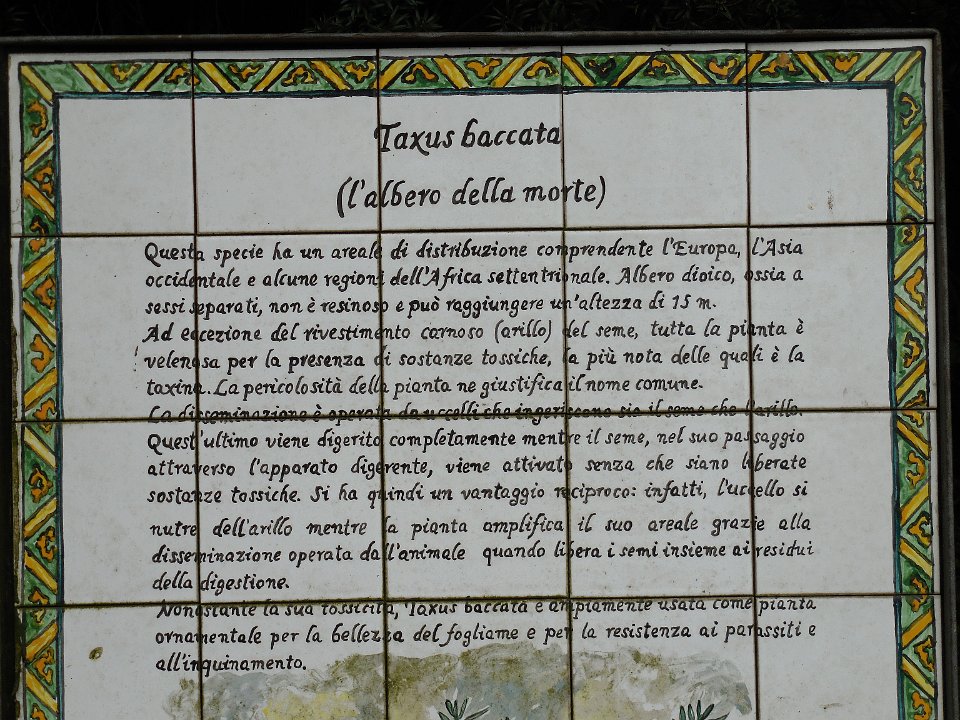 Taxus baccata
(l'albero della morte)
Questa specie ha un areale di distribuzione comprendente l'Europa, l'Asia
occidentale e alcune regioni dell'Africa settentrionale. Albero dioico, ossia a
sessi separati, non è resinoso e può raggiungere un'altezza di 15 m.
Ad eccezione del rivestimento carnoso (arillo) del seme, tutta la pianta è
velenosa per la presenza di sostanze tossiche, la più nota delle quali è la
taxina. La pericolosità della pianta ne giustifica il nome comune.
La disseminazione è operata da uccelli che ingeriscono sia il seme che l'arillo.
Quest'ultimo viene digerito completamente mentre il seme, nel suo passaggio
attraverso l'apparato digerente, viene attivato senza che siano liberate
sostanze tossiche. Si ha quindi un vantaggio reciproco: infatti, l'uccello si
nutre dell'arillo mentre la pianta amplifica il suo areale grazie alla
disseminazione operata dall'animale quando libera i semi insieme ai residui
della digestione.
Nonostante la sua tossicità, Taxus baccata è ampiamente usata come pianta
ornamentale per la bellezza del fogliame e per la resistenza ai parassiti e
all'inquinamento.